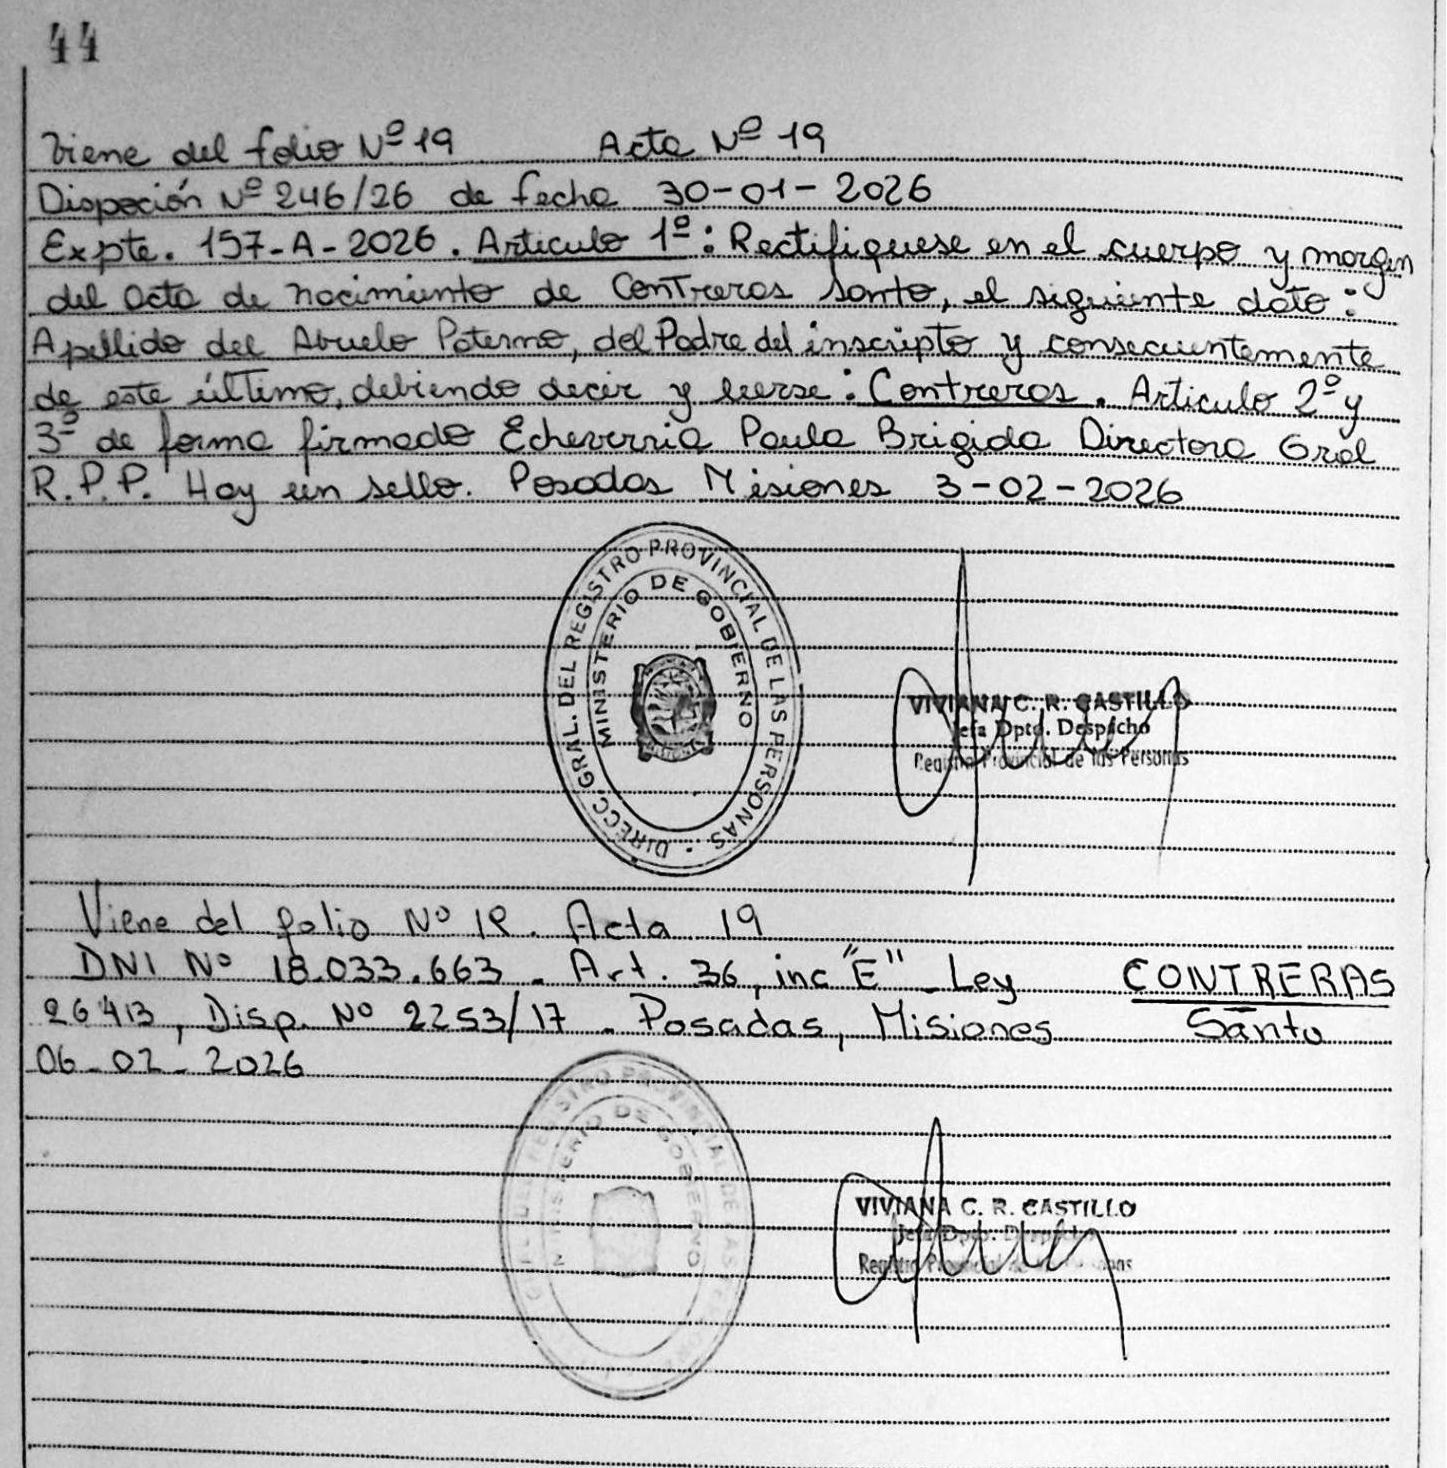 44
Viene del folio Nº 19 Acta Nº 19
Disposción Nº 246/26 de fecha 30-01-2026
Expte. 157-A-2026. Articulo 1º: Rectifiquese en el cuerpo y margen
del acta de nacimiento de Contreras Santo, el siguiente dato:
Apellido del Abuelo Paterno, del Padre del inscripto y consecuentemente
de este último, debiendo decir y leerse: Contreras. Articulo 2º y
3º de forma firmado Echeverria Paula Brigida Directora Gral
R.P.P. Hay un sello. Posadas Misiones 3-02-2026
DIRECC. GRAL. DEL REGISTRO PROVINCIAL DE LAS PERSONAS
MINISTERIO DE GOBIERNO
VIVIANA C. R. CASTILLO
Jefa Dpto. Despacho
Registro Provincial de las Personas
Viene del folio Nº 19. Acta 19
DNI Nº 18.033.663 - Art. 36, inc "E" - Ley CONTRERAS
26413, Disp. Nº 2253/17 - Posadas, Misiones Santo
06-02-2026
REGISTRO PROVINCIAL DE LAS
MINISTERIO DE GOBIERNO
VIVIANA C. R. CASTILLO
Jefa Dpto. Despacho
Registro Provincial de